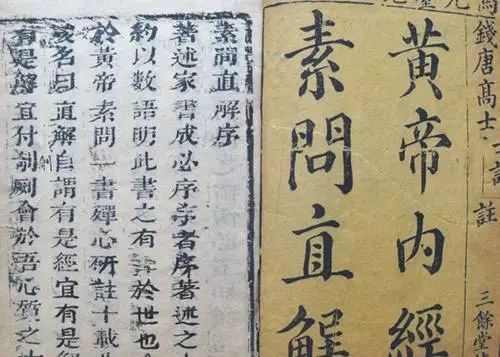 錢唐高士
註
三餘堂
黃帝內經
素問直解
素問直解序
著述家書成必序序者序著述之
約以數語明此書之有於世也
於黃帝素問一書殫心研註十載
名曰直解自謂有是經宜有是解
有是解宜付剞劂會於語心質之